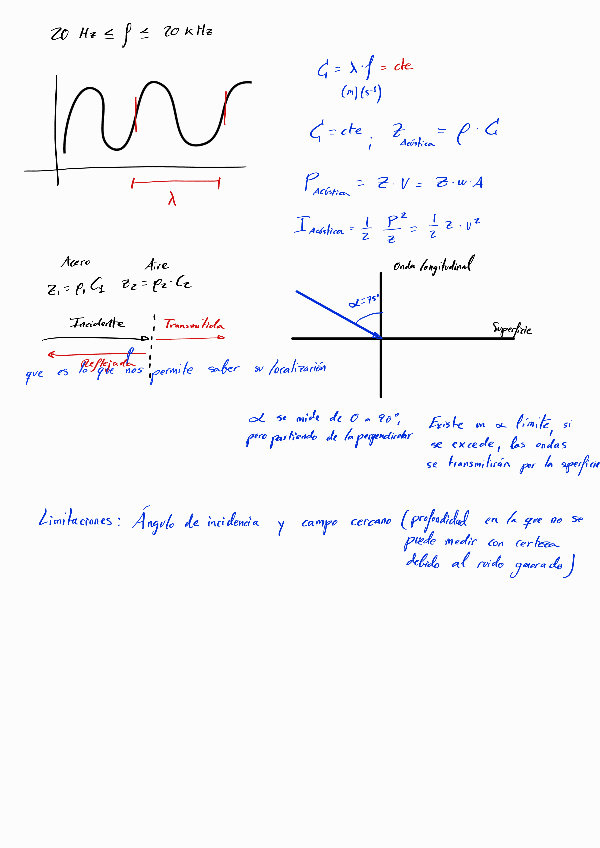 20 Hz ≤ f ≤ 20 kHz
C = λ · f = cte
(m) (s⁻¹)
C = cte ; Z Acústica = ρ · C
P Acústica = Z · V = Z · w · A
I Acústica = 1/2 P²/Z = 1/2 Z · v²
λ
Acero Aire
Z₁ = ρ₁ C₁ Z₂ = ρ₂ · C₂
Incidente Transmitida
Reflejada
que es lo que nos permite saber su localización
Onda longitudinal
α = 75°
Superficie
α se mide de 0 a 90°,
pero partiendo de la perpendicular
Existe un α límite, si
se excede, las ondas
se transmitirán por la superficie
Limitaciones: Ángulo de incidencia y campo cercano (profundidad en la que no se
puede medir con certeza
debido al ruido generado)